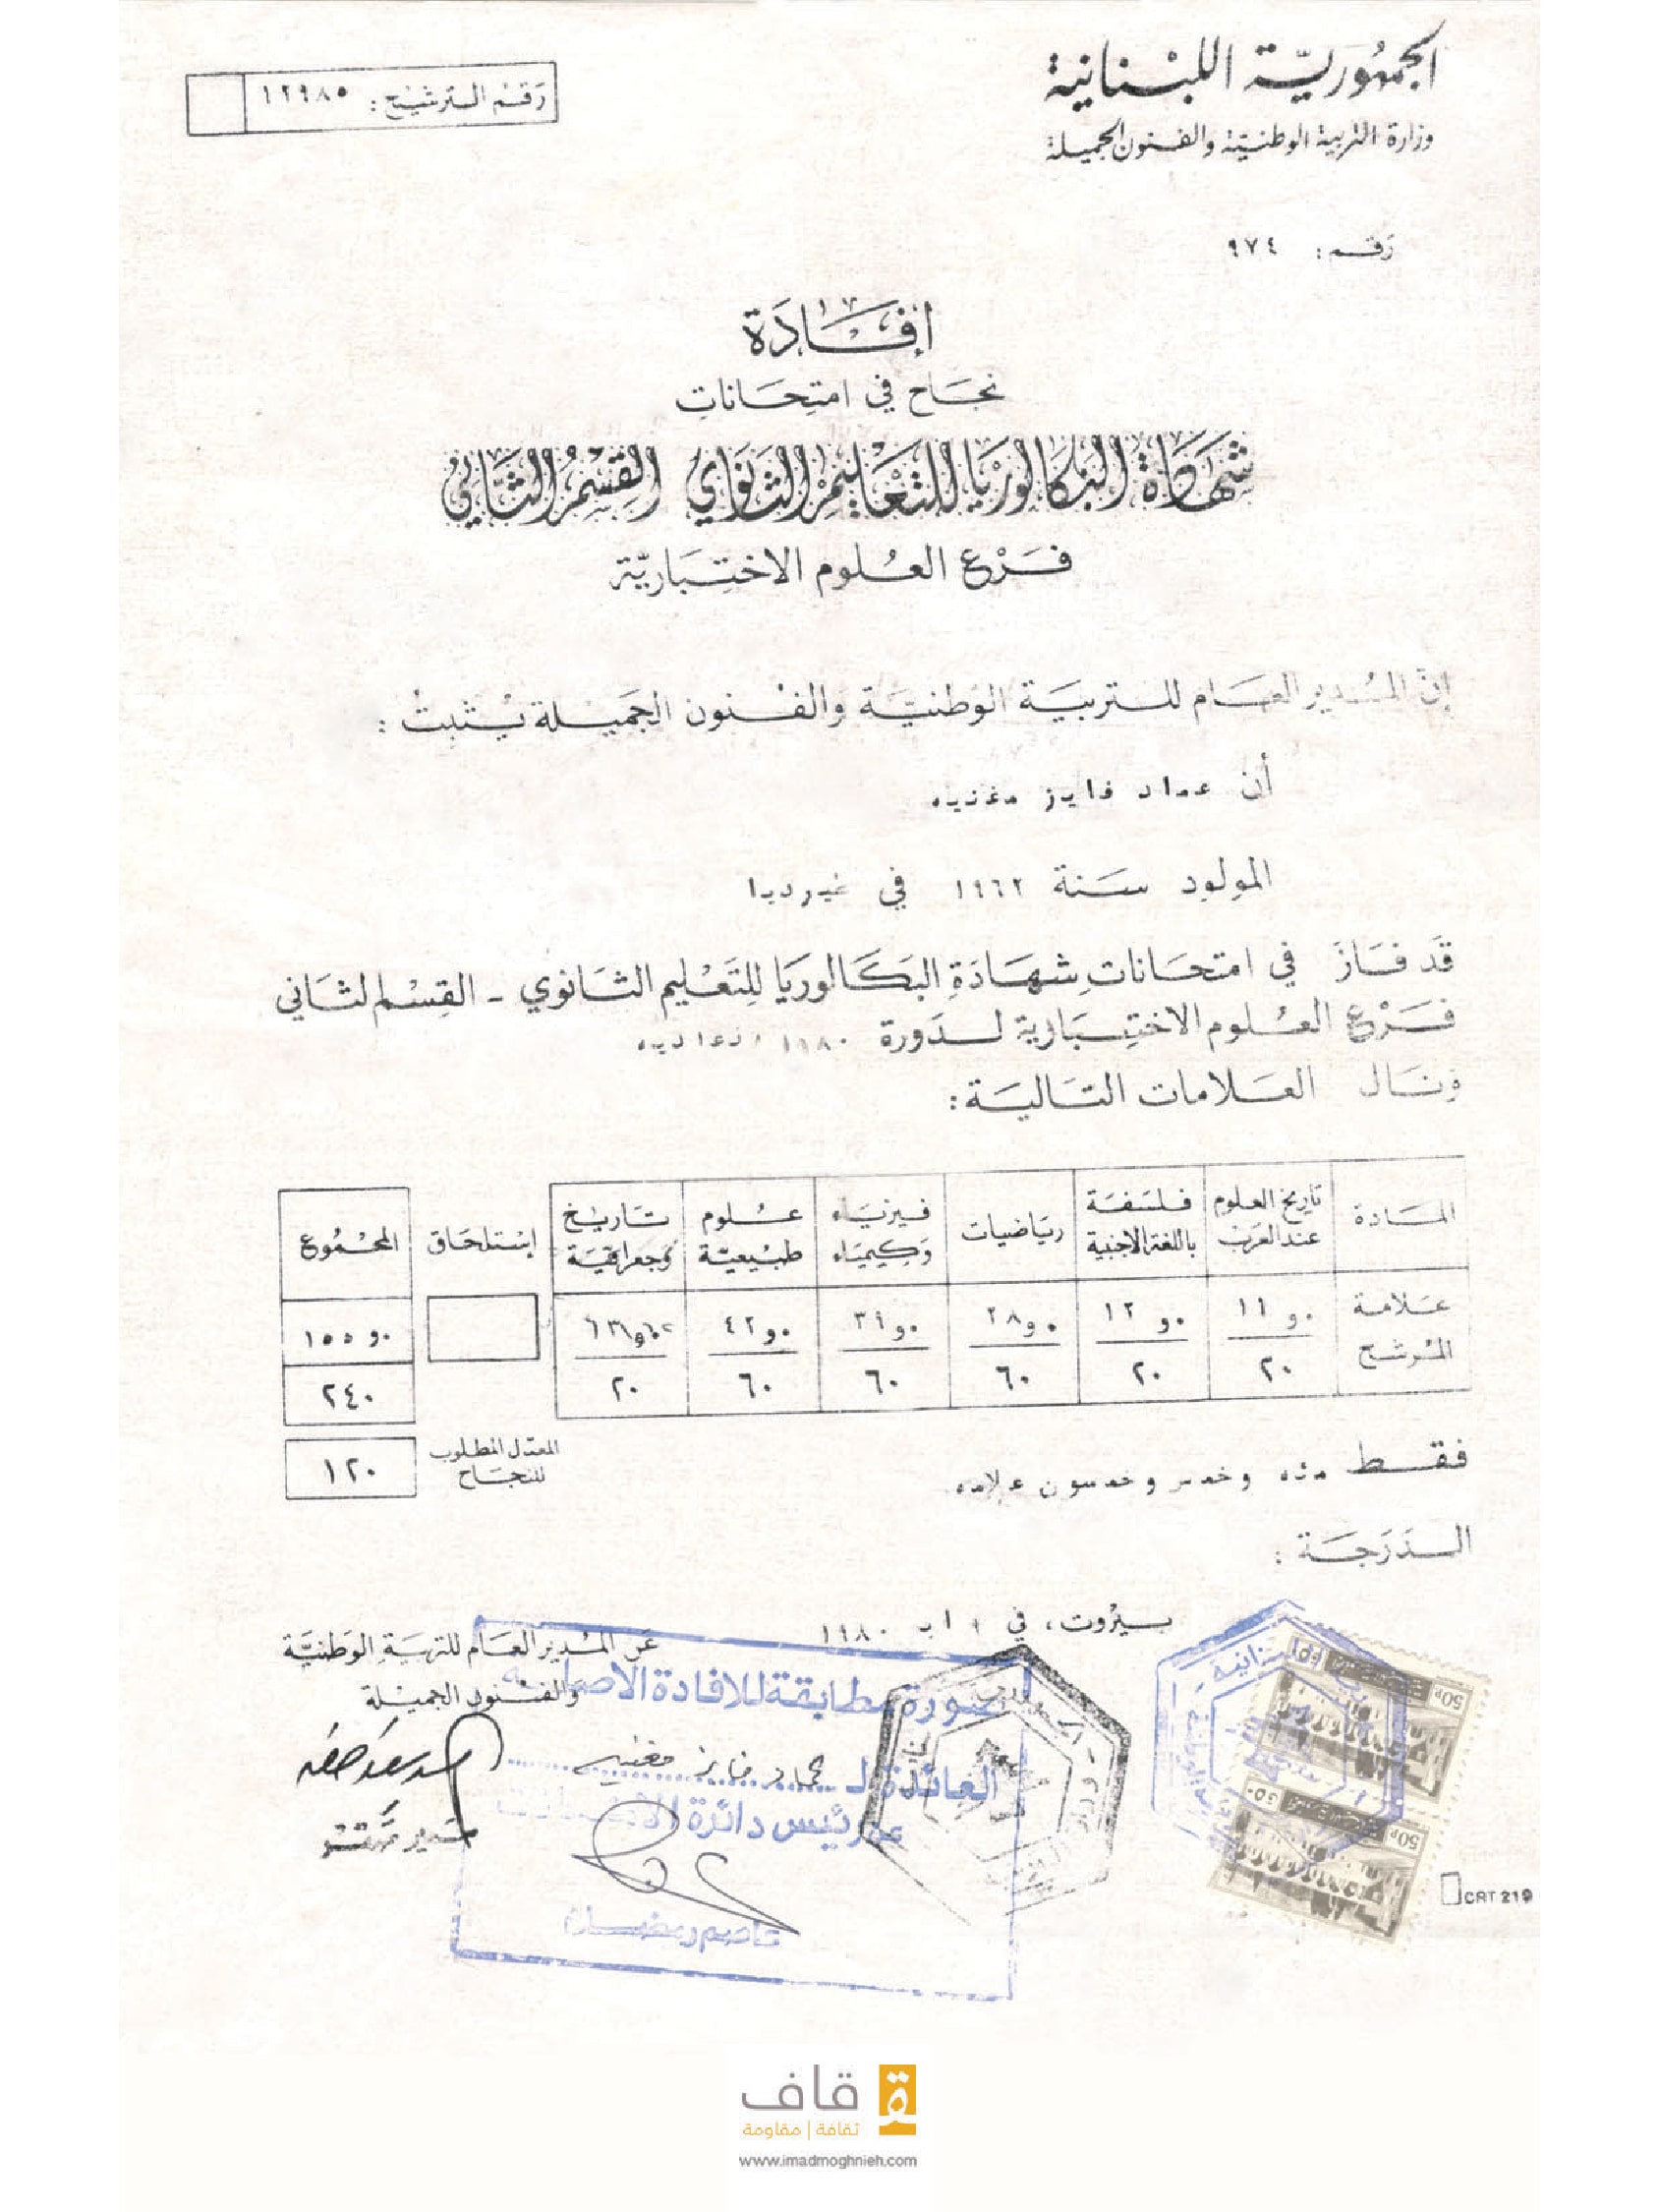 الجمهورية اللبنانية
وزارة التربية الوطنية والفنون الجميلة
رقم الترشيح: ١٢٩٨٥
رقم: ٩٧٤
إفادة
نجاح في امتحانات
شهادة البكالوريا للتعليم الثانوي القسم الثاني
فرع العلوم الاختبارية
إن المدير العام للتربية الوطنية والفنون الجميلة يثبت:
أن عماد فايز مغنيه
المولود سنة ١٩٦٢ في
قد فاز في امتحانات شهادة البكالوريا للتعليم الثانوي - القسم الثاني
فرع العلوم الاختبارية لدورة ١٩٨٠
ونال العلامات التالية:
المادة تاريخ العلوم عند العرب فلسفة باللغة الاجنبية رياضيات فيزياء وكيمياء علوم طبيعية تاريخ وجغرافية إستلحاق المجموع
علامة المرشح ١١و٠٠ ١٢و٠٠ ٢٨و٠ ٣٩و٠٠ ٤٢و٠٠ ١٥٥و٠٠
٢٠ ٢٠ ٦٠ ٦٠ ٦٠ ٢٠ ٢٤٠
المعدل المطلوب للنجاح ١٢٠
فقط مئه وخمس وخمسون علامه
الدرجة:
بيروت، في اب ١٩٨٠
عن المدير العام للتربية الوطنية
والفنون الجميلة
صورة مطابقة للافادة الاصلية
العائدة لـ عماد فايز مغنيه
عن رئيس دائرة الامتحانات
عاصم رمضان
50p
50p
CRT 219
قاف
ثقافة | مقاومة
www.imadmoghnieh.com